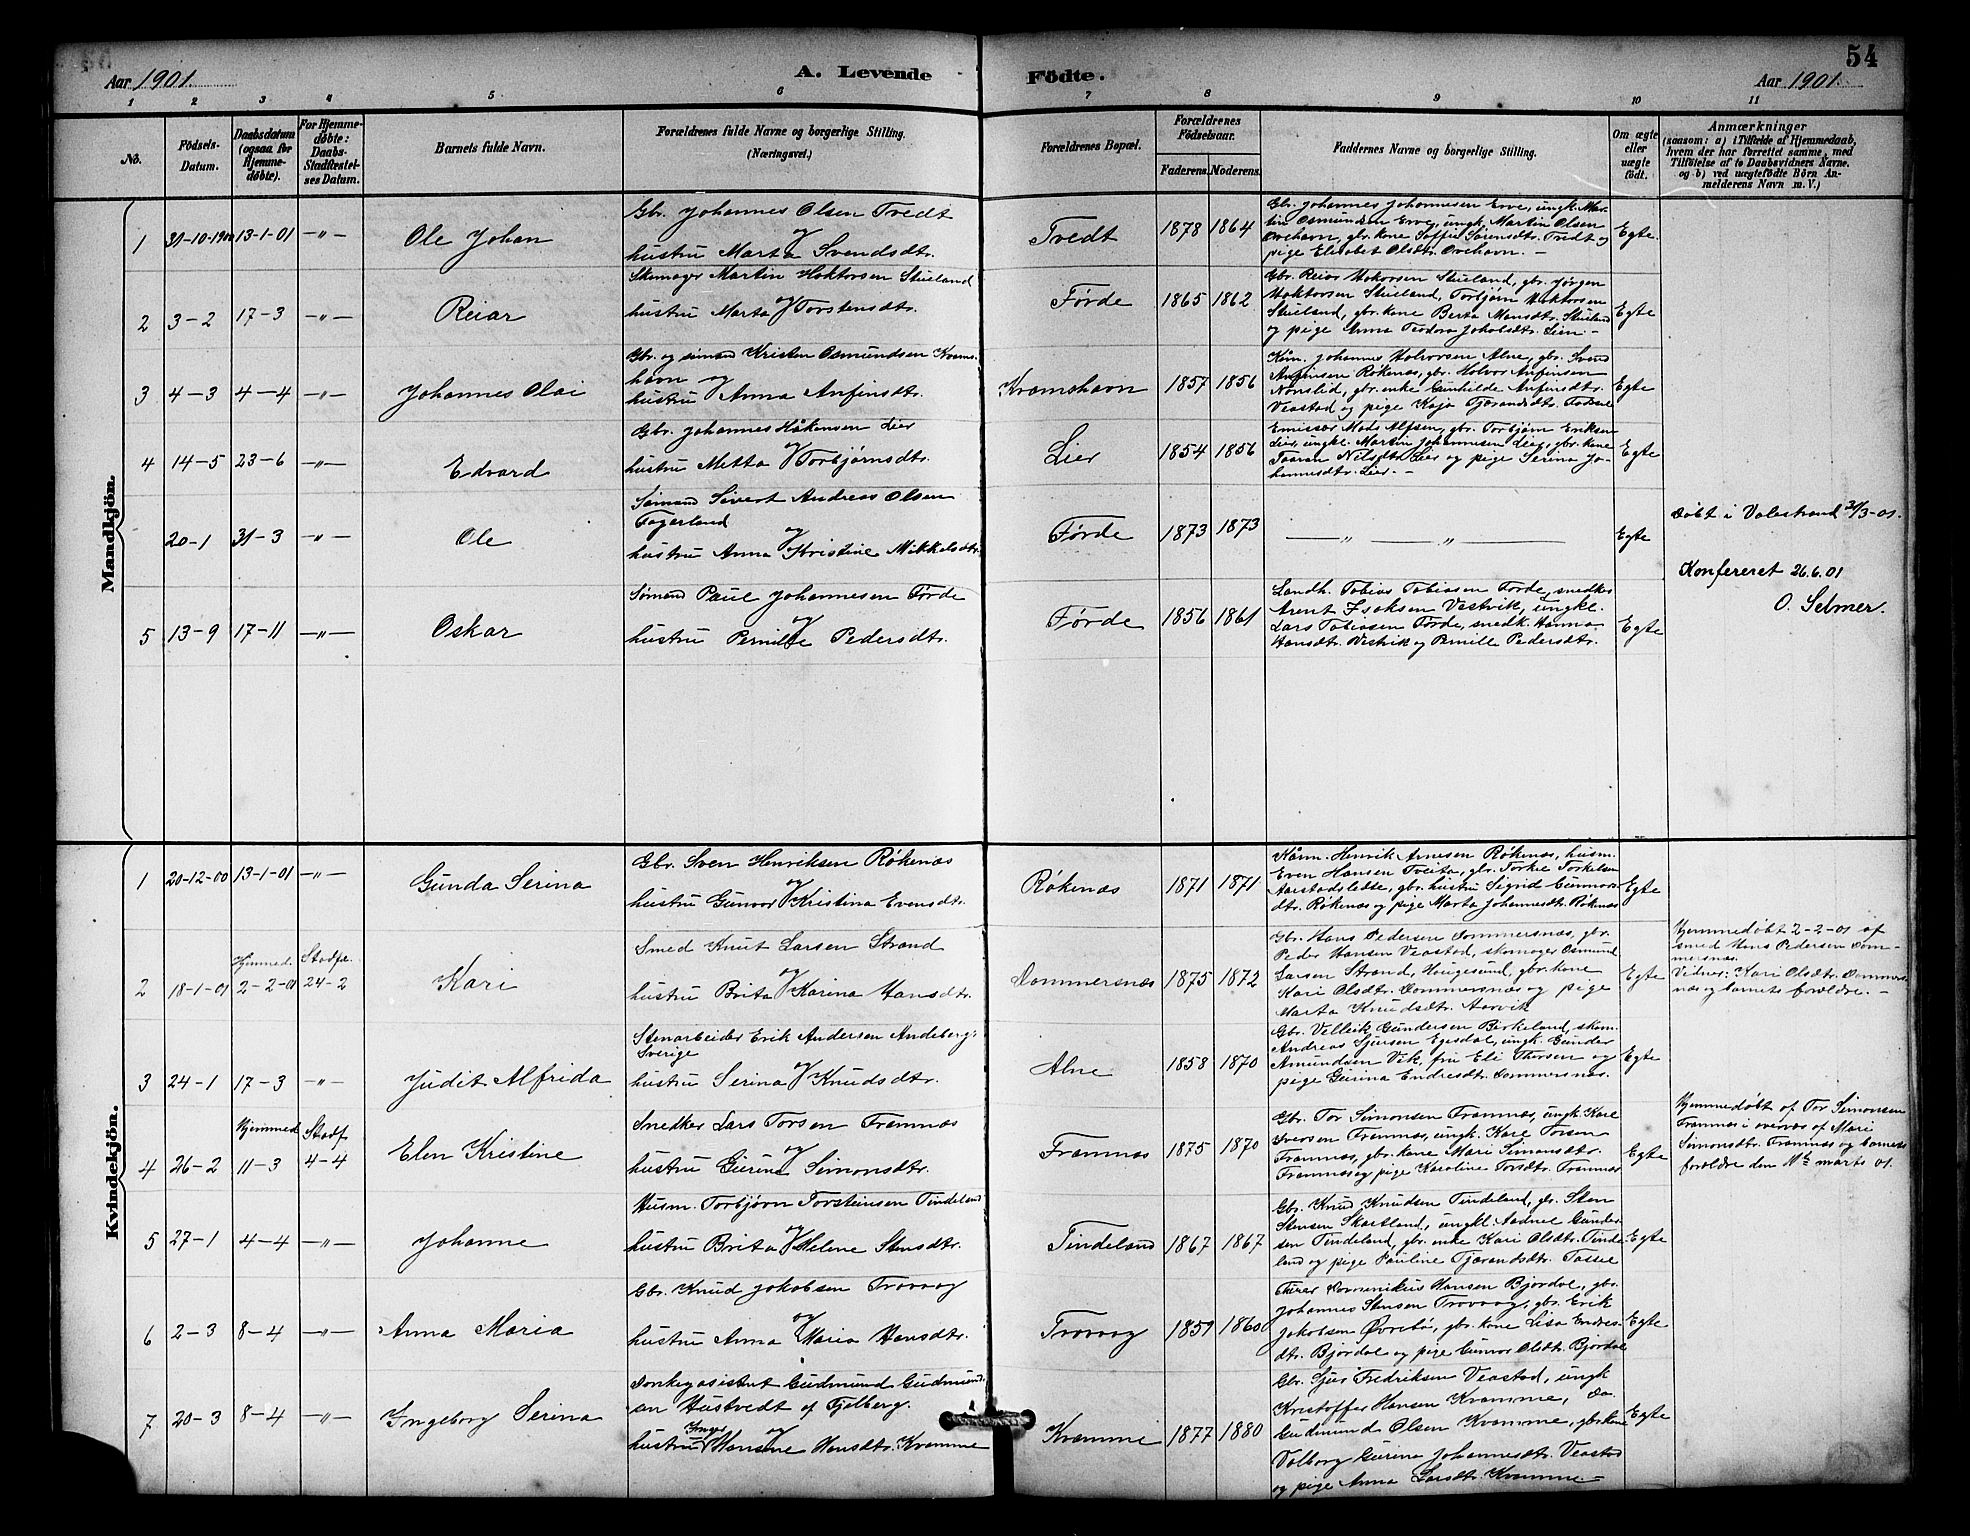 54
Aar 1901.
A. Levende
Födte.
Aar 1901.
1 2 3 4 5 6 7 8 9 10 11
No.
Födsels-Datum.
Daabsdatum (ogsaa for Hjemme-døbte).
For Hjemme-døbte: Daabs-Stadfæstel-ses Datum.
Barnets fulde Navn.
Forældrenes fulde Navne og borgerlige Stilling. (Næringsvei.)
Forældrenes Bopæl.
Forældrenes Födselsaar.
Faderens. Moderens.
Faddernes Navne og borgerlige Stilling.
Om ægte eller uægte födt.
Anmærkninger
(saasom: a) i Tilfælde af Hjemmedaab, hvem der har forrettet samme, med Tilföielse af to Daabsvidners Navne. og b) ved uægtefödte Börn An-melderens Navn m. V.)
Mandkjön.
1 31-10-1900 13-1-01 -"- Ole Johan
Gbr. Johannes Olsen Tvedt
og
hustru Marta Svendsdtr.
Tvedt 1878 1864
Gbr. Johannes Johannesen Erve, ungk. Mar-
tin Osmundsen Erve, ungk. Martin Olsen
Ovehavn, gbr. kone Soffie Sørensdtr. Tvedt og
pige Elisabet Olsdtr. Ovehavn. -
Egte.
2 3-2 17-3 -"- Reiar
Skomager Martin Hoktorsen Stueland
og
hustru Marta Torstensdtr.
Førde 1865 1862
Gbr. Reiar Hoktorsen Stueland, gbr. Jørgen
Hoktorsen Stueland, Torbjørn Hoktorsen
Stueland, gbr. kone Berta Monsdtr. Stueland
og pige Anna Teodora Jakobsdtr. Lien. -
Egte
3 4-3 4-4 -"- Johannes Olai
Gbr. og sømand Kristen Osmundsen Kroms-
havn og
hustru Anna Anfinsdtr.
Kromshavn 1857 1856
Kårm. Johannes Holvorsen Alne, gbr. Svend
Anfinsen Røkenæs, gbr. Holvor Anfinsen
Nonslid, gbr. enke Gunhilde Anfinsdtr.
Veastad og pige Kaja Tjærandsdtr. Fosse
Egte
4 14-5 23-6 -"- Edvard
Gbr. Johannes Håkensen Lier
og
hustru Metta Torbjørnsdtr.
Lier 1854 1856
Emissær Mads Alfsen, gbr. Torbjørn Eriksen
Lier, ungk. Martin Johannesen Lier, gbr. kone
Taaran Nilsdtr. Lier og pige Serina Jo-
hannesdtr. Lier. -
Egte
20-1 31-3 -"- Ole
Sømand Sivert Andreas Olsen
Fagerland
og
hustru Anna Kristine Mikkelsdtr.
Førde 1873 1873
-"- -"-
Egte
Døbt i Valestrand 31/3-01.
Konfereret 26.6.01
O. Selmer.
5 13-9 17-11 -"- Oskar
Sømand Paul Johannesen Førde
og
hustru Pernille Pedersdtr.
Førde 1856 1861
Landh. Tobias Tobiasen Førde, snedker
Arent Isaksen Vestvik, ungk.
Lars Tobiasen Førde, snedk. Hanna
Hansdtr. Vestvik og Pernille Pedersdtr.
Egte
Kvindekjön.
1 20-12-00 13-1-01 -"- Gunda Serina
Gbr. Sven Henriksen Røkenæs
og
hustru Gunvor Kristina Evensdtr.
Røkenæs 1871 1871
Kårm. Henrik Arnesen Røkenæs, husm.
Even Hansen Tveita, gbr. Torkie Torkelsen
Aarstadslette, gbr. hustru Sigrid Gunnors-
dtr. Røkenæs og pige Marta Johannesdtr. Røkenæs
Egte
2 18-1-01 Hjemmed. 2-2-01 Stadfæ. 24-2 Kari
Smed Knut Larsen Strand
og
hustru Brita Karina Hansdtr.
Dommersnæs 1875 1872
Gbr. Hans Pedersen Dommersnæs, gbr.
Peder Hansen Veastad, skomager Osmund
Larsen Strand, Haugesund, gbr. kone
Kari Olsdtr. Dommersnæs og pige
Marta Knudsdtr. Aarvik
Egte
Hjemmedøbt 2-2-01 af
smed Hans Pedersen Dom-
mersnæs.
Vidner: Kari Olsdtr. Dommers-
næs og barnets forældre. -
3 24-1 17-3 -"- Judit Alfrida
Stenarbeider Erik Andersen Andeberg,
Sverige
og
hustru Serina Knudsdtr.
Alne 1858 1870
Gbr. Velleik Gundersen Birkeland, skom.
Andreas Sjursen Egesdal, ungk. Gunder
Amundsen Vik, fru Eli Thorsen og
pige Gurina Endresdtr. Dommersnæs.
Egte
4 26-2 Hjemmed. 11-3 Stadf. 4-4 Elen Kristine
Snedker Lars Torsen Framnæs
og
hustru Gurine Simonsdtr.
Framnæs 1875 1870
Gbr. Tor Simonsen Framnæs, ungk. Kare
Iversen Framnæs, ungk. Kare Torsen
Framnæs, gbr. kone Mari Simonsdtr.
Framnæs og pige Karoline Torsdtr. Framnæs
Egte
Hjemmedøbt af Tor Simonsen
Framnæs i overvær af Mari
Simonsdtr. Framnæs og barnets
forældre den 11te marts 01.
5 27-1 4-4 -"- Johanne
Husm. Torbjørn Torsteinsen Tindeland
og
hustru Brita Helene Stensdtr.
Tindeland 1867 1867
Gbr. Knud Knudsen Tindeland, gbr. Sten
Stensen Skartland, ungk. Aadne Gunder-
sen Tindeland, gbr. enke Kari Olsdtr. Tinde-
land og pige Pauline Tjærandsdtr. Fosse
Egte
6 2-3 8-4 -"- Anna Maria
Gbr. Knud Jakobsen Trovaag
og
hustru Anna Maria Hansdtr.
Trovaag 1859 1860
Dominikus Hansen Bjordal, gbr.
Johannes Stensen Trovaag, gbr. Erik
Jakobsen Øvrebø, gbr. kone Lisa Endres-
dtr. Bjordal og pige Gunvor Olsdtr. Bjordal
Egte
7 20-3 8-4 -"- Ingeborg Serina
Donkeyasistent Gudmund Gudmund-
sen Hustvedt af Fjelberg.
og
hustru Inger Hansine Hansdtr. Kvamme
Kvamme 1877 1880
Gbr. Sjur Fredriksen Veastad, ungk.
Kristoffer Hansen Kvamme, do
Gudmund Olsen Kvamme, gbr. kone
Valborg Gurina Johannesdtr. Veastad
og pige Anna Larsdtr. Kvamme. -
Egte